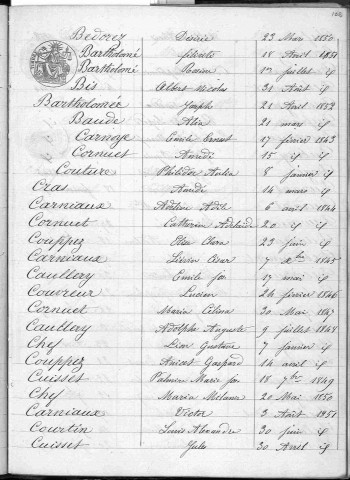 Bedorez Désirée 23 Mars 1850
Bartholomé 18 Avril 1851
Bartholomé Rosine 17 juillet if
Bis Albert Nicolas 31 Août if
Bartholomée Joseph 21 Avril 1852
Baude Alix 21 mars if
Carnoze Emile Ernest 17 février 1843
Cornuet Aimée 15 if if
Couture Philidor 8 janvier if
Cras Aimée 14 mars if
Carniaux Adeline Adile 6 avril 1844
Cornuet Catherine Adélaïde 20 if if
Couppez Clara 23 juin if
Carniaux César 7 Xbre 1845
Caullery Emile jos 17 mai if
Couvreur Lucien 24 février 1846
Cornuet Maria Célina 30 Mai 1847
Caullery Adolphe Auguste 9 juillet 1848
Chy Léon Gustave 7 janvier if
Couppez Anicet Gaspard 14 avril if
Cuisset Palmire Marie jos 18 7bre 1849
Chy Maria Mélanie 20 Mai 1850
Carniaux Victor 3 Août 1851
Courtin Louis Alexandre 30 juin if
Cuisset Jules 30 Avril if